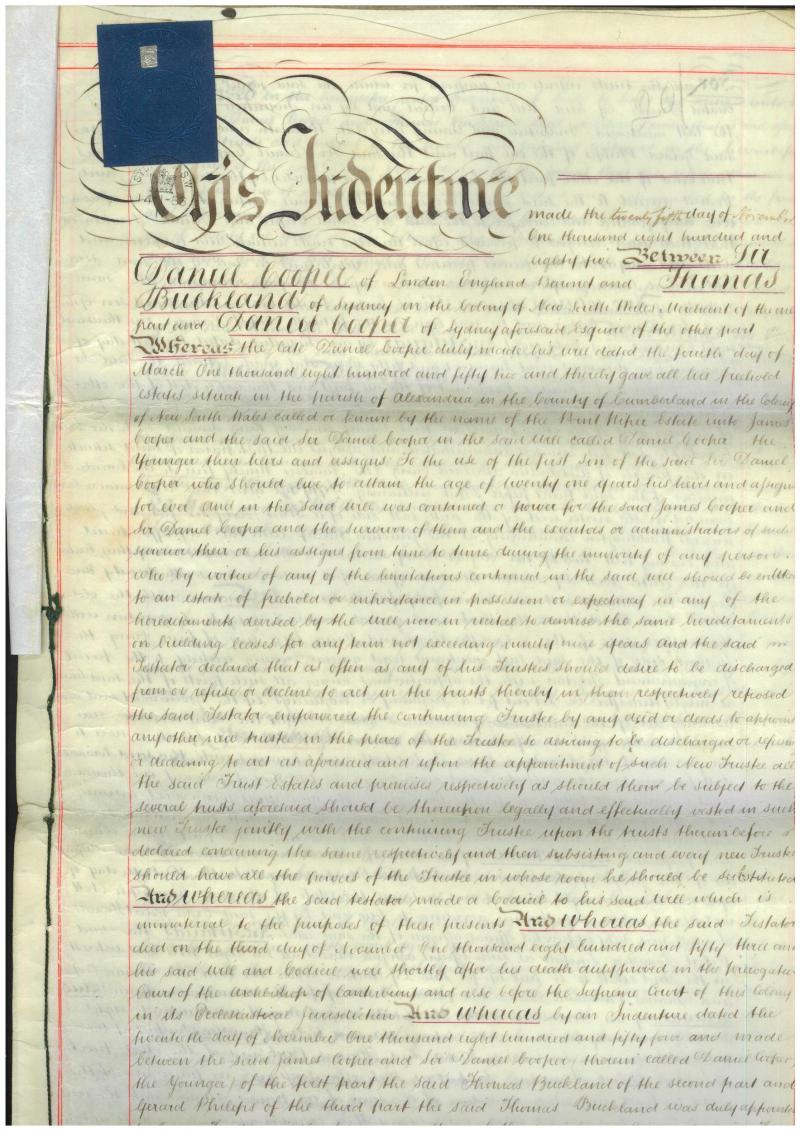 This Indenture made the twenty fifth day of November
One thousand eight hundred and
eighty five Between Sir
Daniel Cooper of London England Baronet and Thomas
Buckland of Sydney in the Colony of New South Wales Merchant of the one
part and Daniel Cooper of Sydney aforesaid Esquire of the other part
Whereas the late Daniel Cooper duly made his will dated the fourth day of
March One thousand eight hundred and fifty two and thereby gave all his freehold
estates situate in the parish of Alexandria in the County of Cumberland in the Colony
of New South Wales called or known by the name of the Point Piper Estate unto James
Cooper and the said Sir Daniel Cooper in the said will called Daniel Cooper the
Younger their heirs and assigns To the use of the first son of the said Sir Daniel
Cooper who should live to attain the age of twenty one years his heirs and assigns
for ever and in the said will was contained a power for the said James Cooper and
Sir Daniel Cooper and the survivor of them and the executors or administrators of such
survivor their or his assigns from time to time during the minority of any person
who by virtue of any of the limitations contained in the said will should be entitled
to an estate of freehold or inheritance in possession or expectancy in any of the
hereditaments devised by the will now in recital to demise the same hereditaments
on building leases for any term not exceeding ninety nine years and the said
Testator declared that as often as any of his Trustees should desire to be discharged
from or refuse or decline to act in the trusts thereby in them respectively reposed
the said Testator empowered the continuing Trustee by any deed or deeds to appoint
any other new trustee in the place of the Trustee so desiring to be discharged or refusing
or declining to act as aforesaid and upon the appointment of such New Trustee all
the said Trust Estates and premises respectively as should then be subject to the
several trusts aforesaid should be thereupon legally and effectually vested in such
new Trustee jointly with the continuing Trustee upon the trusts thereinbefore
declared concerning the same respectively and then subsisting and every new Trustee
should have all the powers of the Trustee in whose room he should be substituted
And whereas the said testator made a Codicil to his said will which is
immaterial to the purposes of these presents And whereas the said Testator
died on the third day of November One thousand eight hundred and fifty three and
his said will and Codicil were shortly after his death duly proved in the prerogative
Court of the Archbishop of Canterbury and also before the Supreme Court of this Colony
in its Ecclesiastical Jurisdiction And whereas by an Indenture dated the
twentieth day of November One thousand eight hundred and fifty four and made
between the said James Cooper and Sir Daniel Cooper therein called Daniel Cooper
the Younger) of the first part the said Thomas Buckland of the second part and
Gerard Philips of the third part the said Thomas Buckland was duly appointed